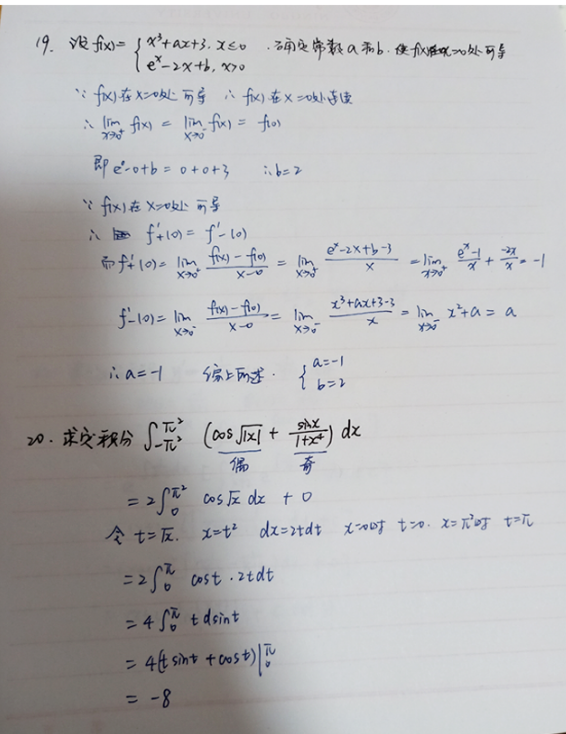 19. 设 f(x)= { x³+ax+3, x≤0 . 确定常数 a 和 b. 使 f(x)在x=0处可导
e^x-2x+b, x>0
∵ f(x)在x=0处可导 ∴ f(x)在x=0处连续
∴ lim x→0⁺ f(x) = lim x→0⁻ f(x) = f(0)
即 e⁰-0+b = 0+0+3 ∴b=2
∵ f(x)在x=0处可导
∴ f'₊(0) = f'₋(0)
而f'₊(0) = lim x→0⁺ (f(x)-f(0))/(x-0) = lim x→0⁺ (e^x-2x+b-3)/x = lim x→0⁺ (e^x-1)/x + (-2x)/x = -1
f'₋(0) = lim x→0⁻ (f(x)-f(0))/(x-0) = lim x→0⁻ (x³+ax+3-3)/x = lim x→0⁻ x²+a = a
∴ a=-1 综上所述. { a=-1
b=2
20. 求定积分 ∫_{-π²}^{π²} (cos√|x| + sinx/(1+x⁴)) dx
偶 奇
= 2∫_0^{π²} cos√x dx + 0
令 t=√x. x=t² dx=2tdt x=0时 t=0. x=π²时 t=π
= 2∫_0^π cost · 2tdt
= 4∫_0^π t dsint
= 4(t sint + cost)|_0^π
= -8